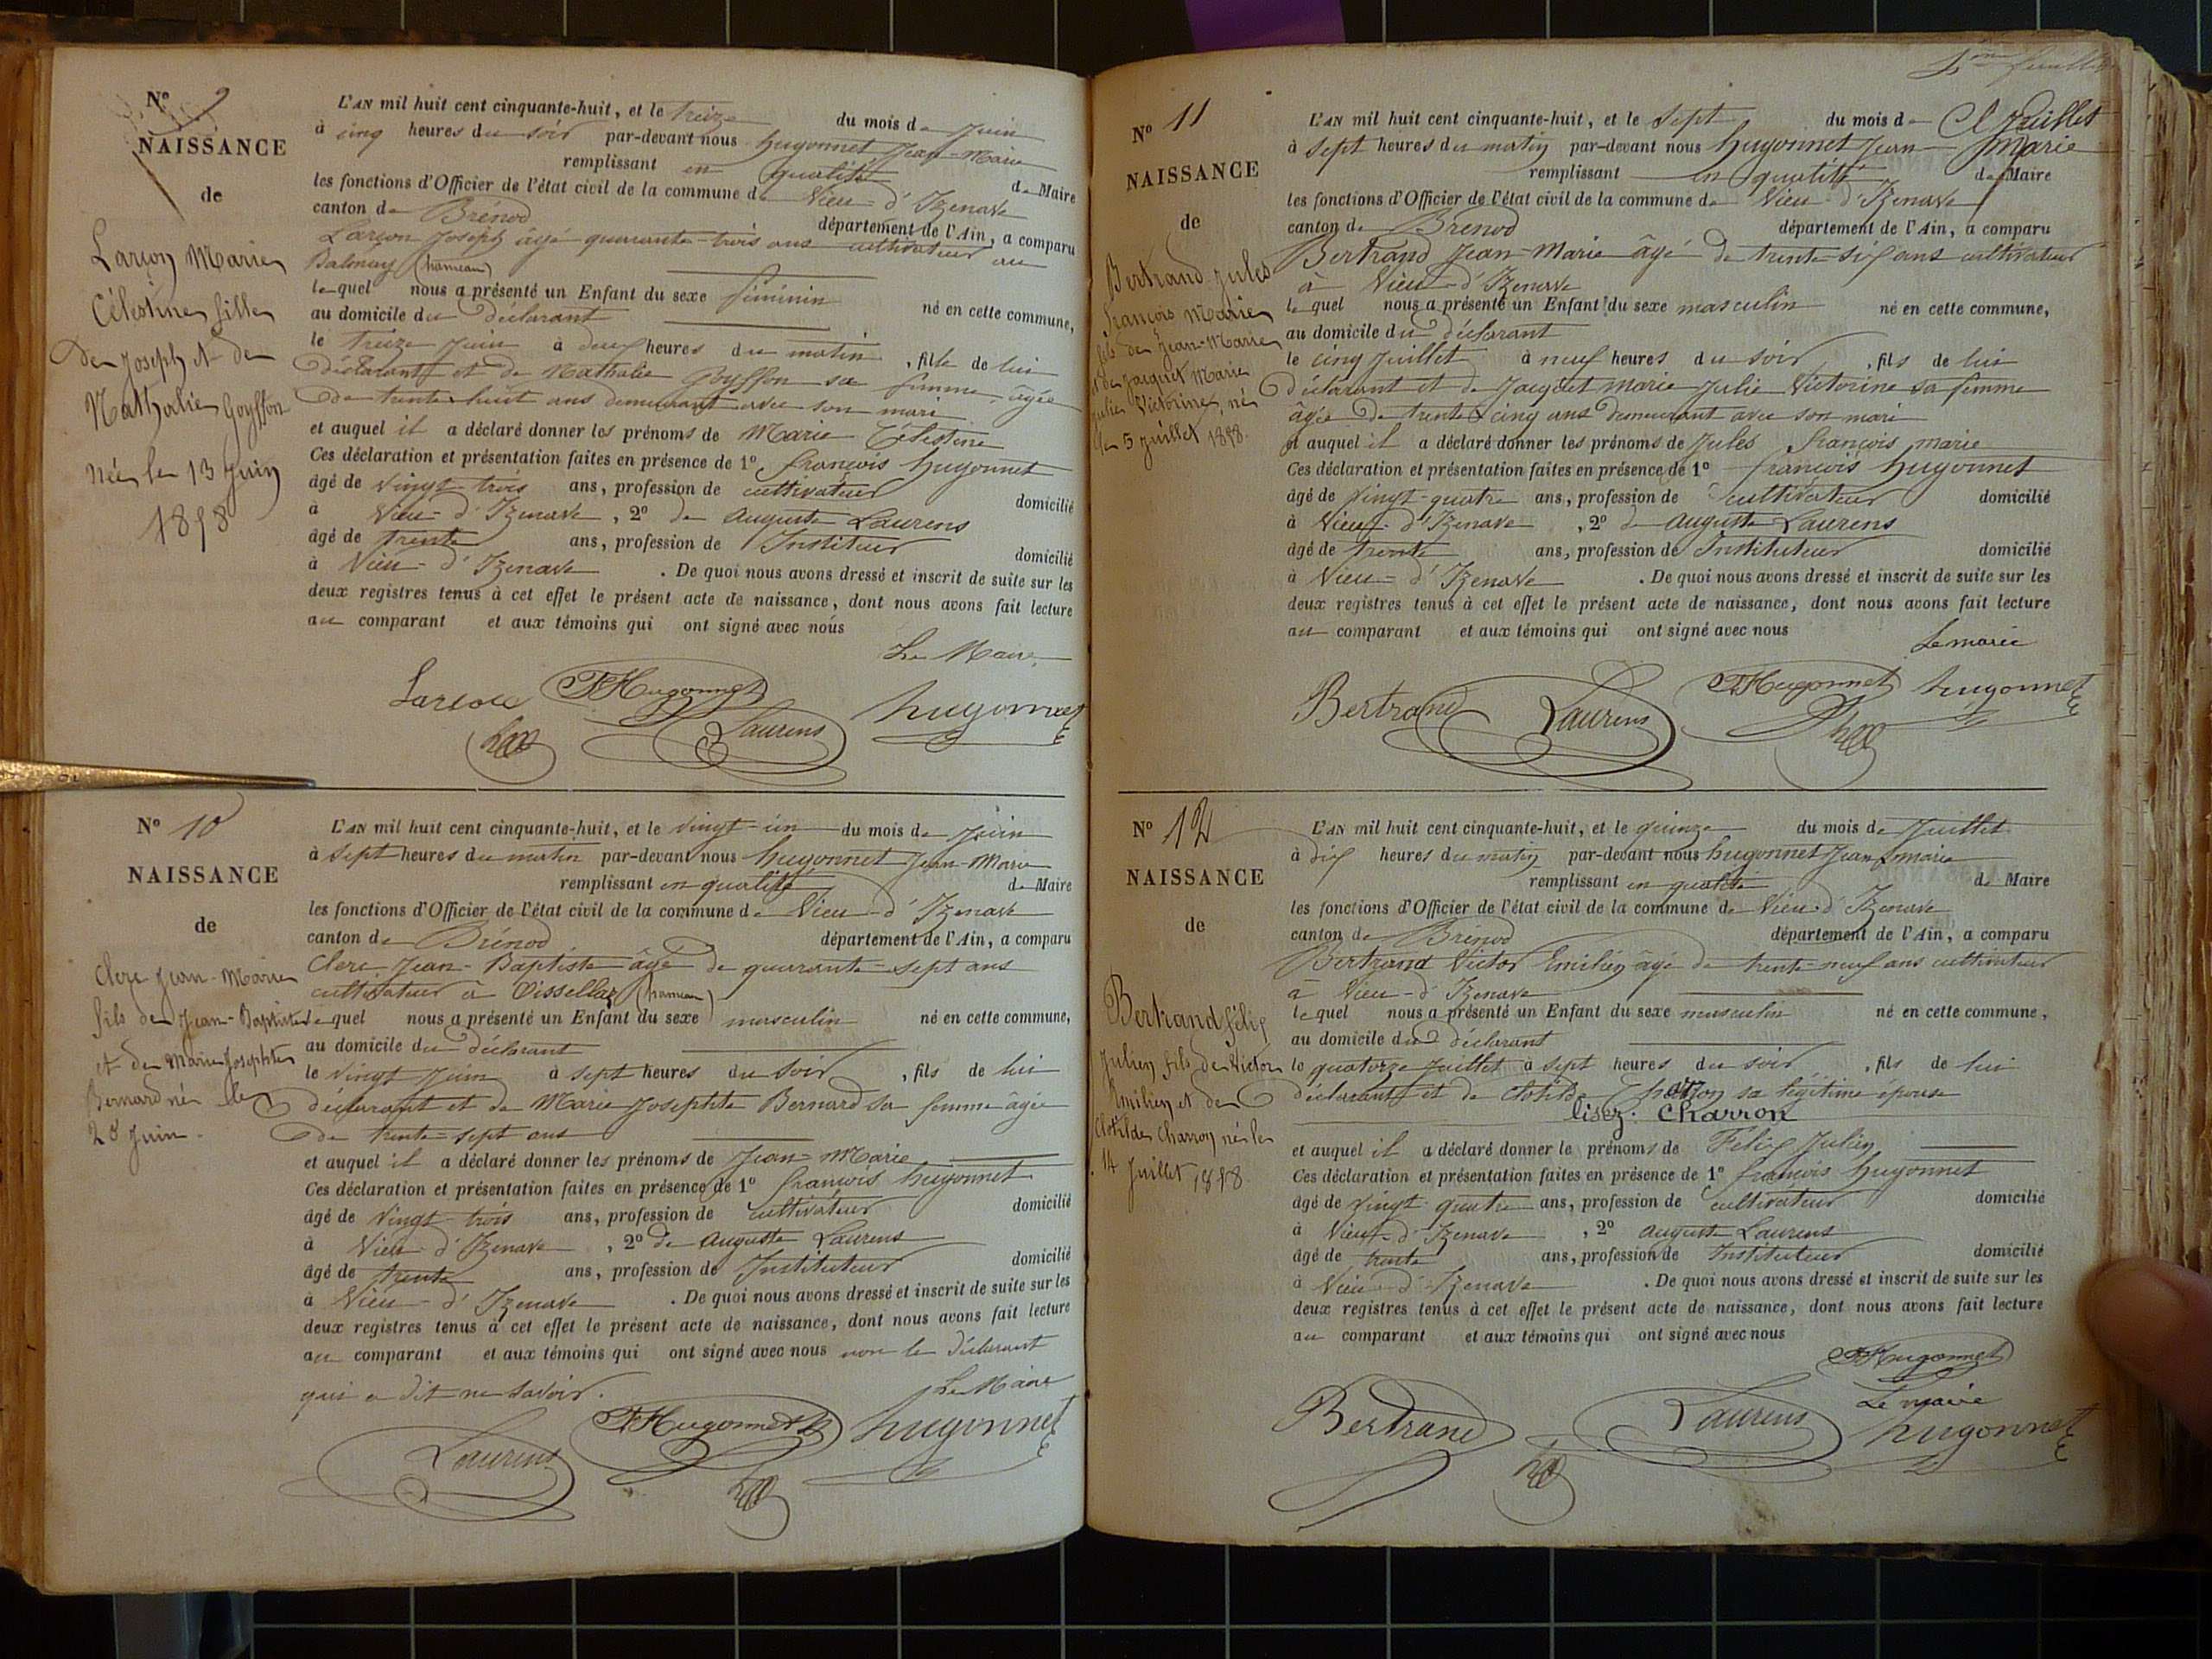 N° 9
NAISSANCE
de
Larçon Marie
Célestine fille
de Joseph et de
Nathalie Goyffon
née le 13 Juin
1858
L'AN mil huit cent cinquante-huit, et le treize du mois de Juin
à cinq heures du soir par-devant nous hugonnet Jean-Marie
remplissant en qualité de Maire
les fonctions d'Officier de l'état civil de la commune de Vieu-d'Izenave
canton de Brénod département de l'Ain, a comparu
Larçon Joseph âgé quarante-trois ans cultivateur au
Balmay (hameau)
lequel nous a présenté un Enfant du sexe féminin né en cette commune,
au domicile du déclarant
le treize Juin à deux heures du matin, fille de lui
déclarant et de Nathalie Goyffon sa femme âgée
de trente huit ans demeurant avec son mari
et auquel il a déclaré donner les prénoms de Marie Célestine
Ces déclaration et présentation faites en présence de 1° françois hugonnet
âgé de vingt-trois ans, profession de cultivateur domicilié
à Vieu-d'Izenave, 2° de Auguste Laurens
âgé de trente ans, profession de Institeur domicilié
à Vieu-d'Izenave. De quoi nous avons dressé et inscrit de suite sur les
deux registres tenus à cet effet le présent acte de naissance, dont nous avons fait lecture
au comparant et aux témoins qui ont signé avec nous
Le Maire
Larçon FHugonnet Laurens hugonnet
N° 10
NAISSANCE
de
Clerc Jean-Marie
fils de Jean-Baptiste
et de Marie Josephte
Bernard né le
20 Juin
L'AN mil huit cent cinquante-huit, et le vingt-un du mois de Juin
à sept heures du matin par-devant nous hugonnet Jean-Marie
remplissant en qualité de Maire
les fonctions d'Officier de l'état civil de la commune de Vieu-d'Izenave
canton de Brénod département de l'Ain, a comparu
Clerc Jean-Baptiste âgé de quarante-sept ans
cultivateur à Oissellaz (hameau)
lequel nous a présenté un Enfant du sexe masculin né en cette commune,
au domicile du déclarant
le vingt Juin à sept heures du soir, fils de lui
déclarant et de Marie Josephte Bernard sa femme âgée
de trente-sept ans
et auquel il a déclaré donner les prénoms de Jean-Marie
Ces déclaration et présentation faites en présence de 1° françois hugonnet
âgé de vingt-trois ans, profession de cultivateur domicilié
à Vieu d'Izenave, 2° de Auguste Laurens
âgé de trente ans, profession de Instituteur domicilié
à Vieu-d'Izenave. De quoi nous avons dressé et inscrit de suite sur les
deux registres tenus à cet effet le présent acte de naissance, dont nous avons fait lecture
au comparant et aux témoins qui ont signé avec nous non le déclarant
qui a dit ne savoir.
Le Maire
Laurens FHugonnet hugonnet
feuillet
N° 11
NAISSANCE
de
Bertrand Jules
François Marie
fils de Jean-Marie
et de Jacquet Marie
Julie Victorine, né
le 5 juillet 1858.
L'AN mil huit cent cinquante-huit, et le Sept du mois de Juillet
à sept heures du matin par-devant nous hugonnet Jean-Marie
remplissant en qualité de Maire
les fonctions d'Officier de l'état civil de la commune de Vieu-d'Izenave
canton de Brénod département de l'Ain, a comparu
Bertrand Jean-Marie âgé de trente-six ans cultivateur
à Vieu-d'Izenave
lequel nous a présenté un Enfant du sexe masculin né en cette commune,
au domicile du déclarant
le cinq Juillet à neuf heures du soir, fils de lui
déclarant et de Jacquet Marie Julie Victorine sa femme
âgée de trente-cinq ans demeurant avec son mari
et auquel il a déclaré donner les prénoms de Jules françois marie
Ces déclaration et présentation faites en présence de 1° françois hugonnet
âgé de vingt-quatre ans, profession de cultivateur domicilié
à Vieu-d'Izenave, 2° de Auguste Laurens
âgé de trente ans, profession de Instituteur domicilié
à Vieu-d'Izenave. De quoi nous avons dressé et inscrit de suite sur les
deux registres tenus à cet effet le présent acte de naissance, dont nous avons fait lecture
au comparant et aux témoins qui ont signé avec nous
Le maire
Bertrand Laurens FHugonnet hugonnet
N° 12
NAISSANCE
de
Bertrand félix
Julien fils de Victor
Emilien et de
Clotilde Charron né le
14 Juillet 1858
L'AN mil huit cent cinquante-huit, et le quinze du mois de Juillet
à dix heures du matin par-devant nous hugonnet Jean-marie
remplissant en qualité de Maire
les fonctions d'Officier de l'état civil de la commune de Vieu-d'Izenave
canton de Brénod département de l'Ain, a comparu
Bertrand Victor Emilien âgé de trente-neuf ans cultivateur
à Vieu-d'Izenave
lequel nous a présenté un Enfant du sexe masculin né en cette commune,
au domicile du déclarant
le quatorze Juillet à sept heures du soir, fils de lui
déclarant et de Clotilde sa légitime épouse
lisez: Charron
et auquel il a déclaré donner le prénoms de Félix Julien
Ces déclaration et présentation faites en présence de 1° françois hugonnet
âgé de vingt-quatre ans, profession de cultivateur domicilié
à Vieu-d'Izenave, 2° Auguste Laurens
âgé de trente ans, profession de Instituteur domicilié
à Vieu-d'Izenave. De quoi nous avons dressé et inscrit de suite sur les
deux registres tenus à cet effet le présent acte de naissance, dont nous avons fait lecture
au comparant et aux témoins qui ont signé avec nous
FHugonnet
Le maire
Bertrand Laurens hugonnet